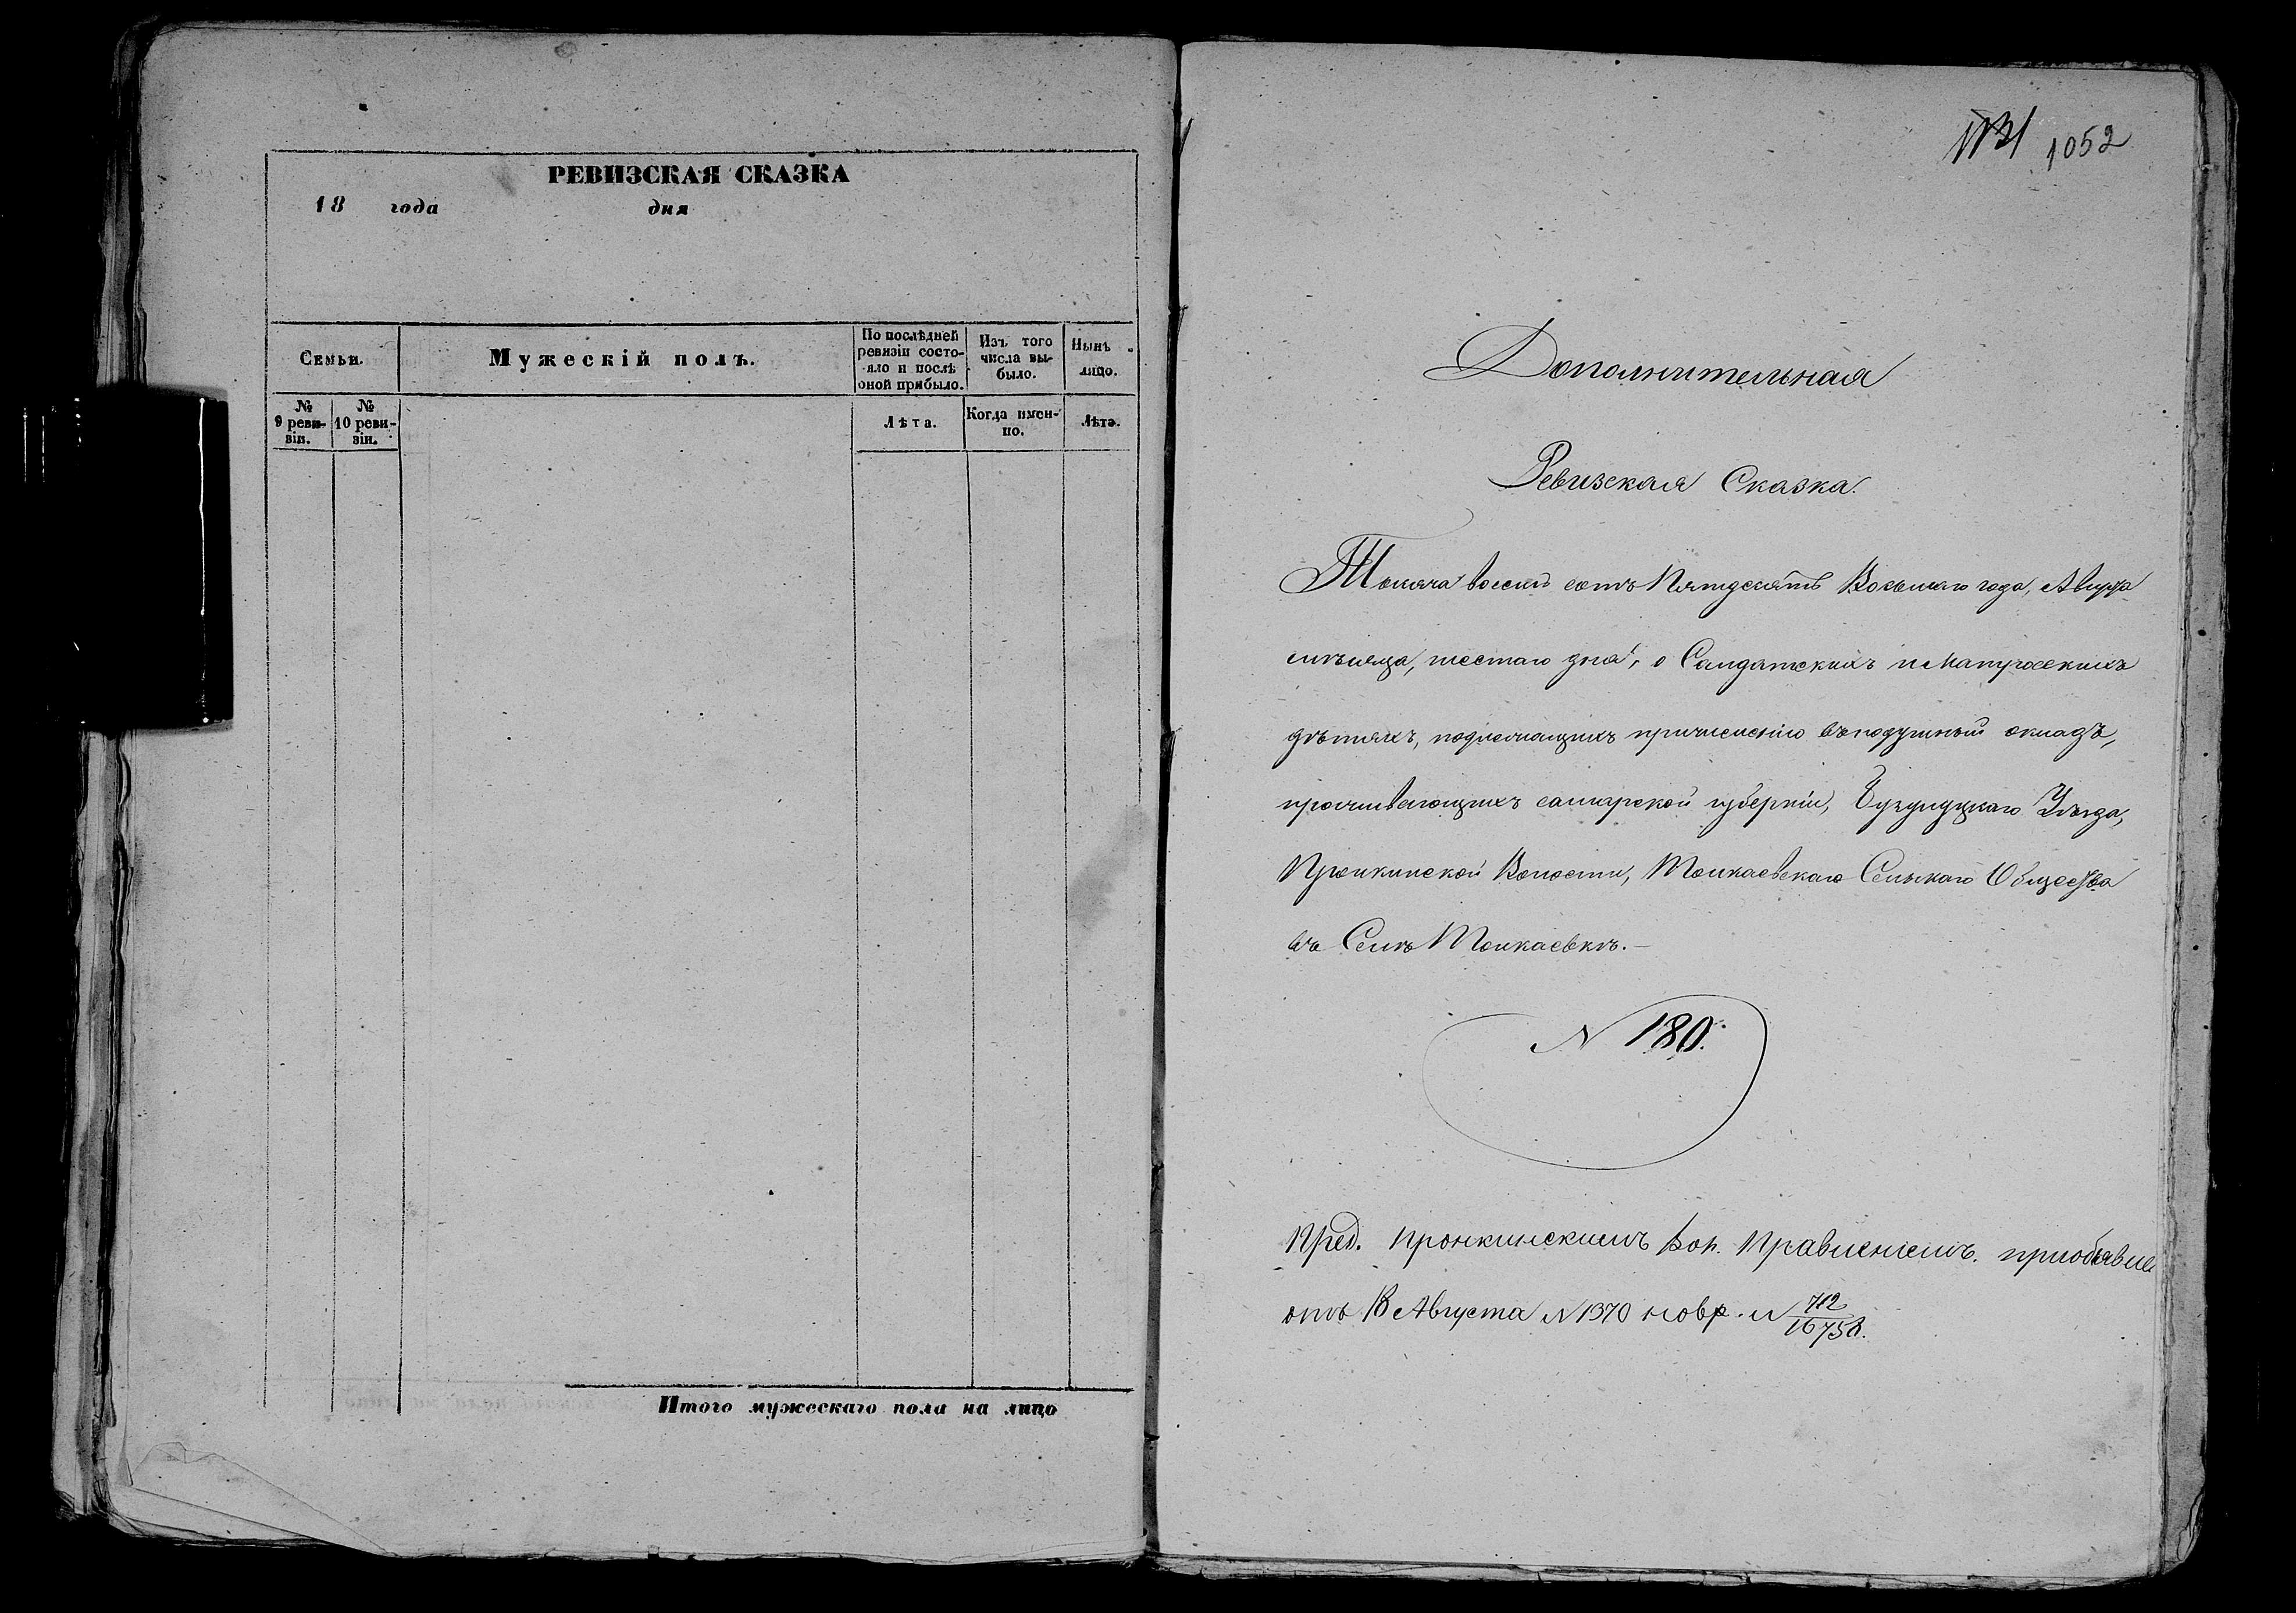 РЕВИЗСКАЯ СКАЗКА
18 года дня
Семьи.
Мужескій полъ.
По послѣдней
ревизіи состо-
яло и послѣ
оной прибыло.
Изъ того
числа вы-
было.
Нынѣ
лицо.
№
9 реви-
зіи.
№
10 реви-
зіи.
Лѣта.
Когда имен-
но.
Лѣта.
Итого мужескаго пола на лицо
1052
Дополнительная
Ревизская Сказка.
Тысяча восемь сотъ Пятдесятъ Восьмаго года, Августа
мѣсяца, шестаго дня, о Салдатскихъ и Матроскихъ
дѣтяхъ, подлежащихъ причисленію въ подушный окладъ,
проживающихъ самарской губерніи, Бузулуцкаго Уѣзда,
Пронкинской Волости, Толкаевскаго Сельскаго Общества
въ Селѣ Толкаевкѣ.—
N 180.
Пред. Пронкинскимъ Вол. Правленіемъ. при объявле
отъ 18 Августа N 1370 N 712
16758.